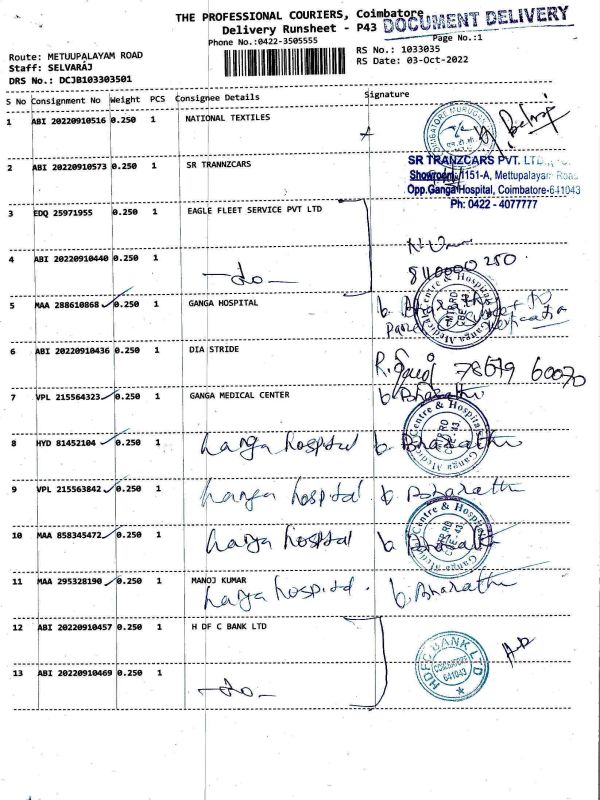 THE PROFESSIONAL COURIERS, Coimbatore
DOCUMENT DELIVERY
Delivery Runsheet - P43
Phone No.:0422-3505555
Page No.:1
Route: METUUPALAYAM ROAD
RS No.: 1033035
Staff: SELVARAJ
RS Date: 03-Oct-2022
DRS No.: DCJB103303501
S No Consignment No Weight PCS Consignee Details Signature
1 ABI 20220910516 0.250 1 NATIONAL TEXTILES
2 ABI 20220910573 0.250 1 SR TRANNZCARS
SR TRANZCARS PVT. LTD.,
Showroom, 1151-A, Mettupalayam Road
Opp.Ganga Hospital, Coimbatore-641043
Ph: 0422 - 4077777
3 EDQ 25971955 0.250 1 EAGLE FLEET SERVICE PVT LTD
4 ABI 20220910440 0.250 1 -do-
5 MAA 288610868 0.250 1 GANGA HOSPITAL b. Bharathi
6 ABI 20220910436 0.250 1 DIA STRIDE 78679 60070
7 VPL 215564323 0.250 1 GANGA MEDICAL CENTER b. Bharathi
8 HYD 81452104 0.250 1 Ganga hospital b. Bharathi
9 VPL 215563842 0.250 1 Ganga hospital. b. Bharathi
10 MAA 858345472 0.250 1 Ganga hospital b. Bharathi
11 MAA 295328190 0.250 1 MANOJ KUMAR
Ganga hospital. b. Bharathi
12 ABI 20220910457 0.250 1 H DF C BANK LTD
HDFC BANK LTD
COIMBATORE
641043
13 ABI 20220910469 0.250 1 -do-